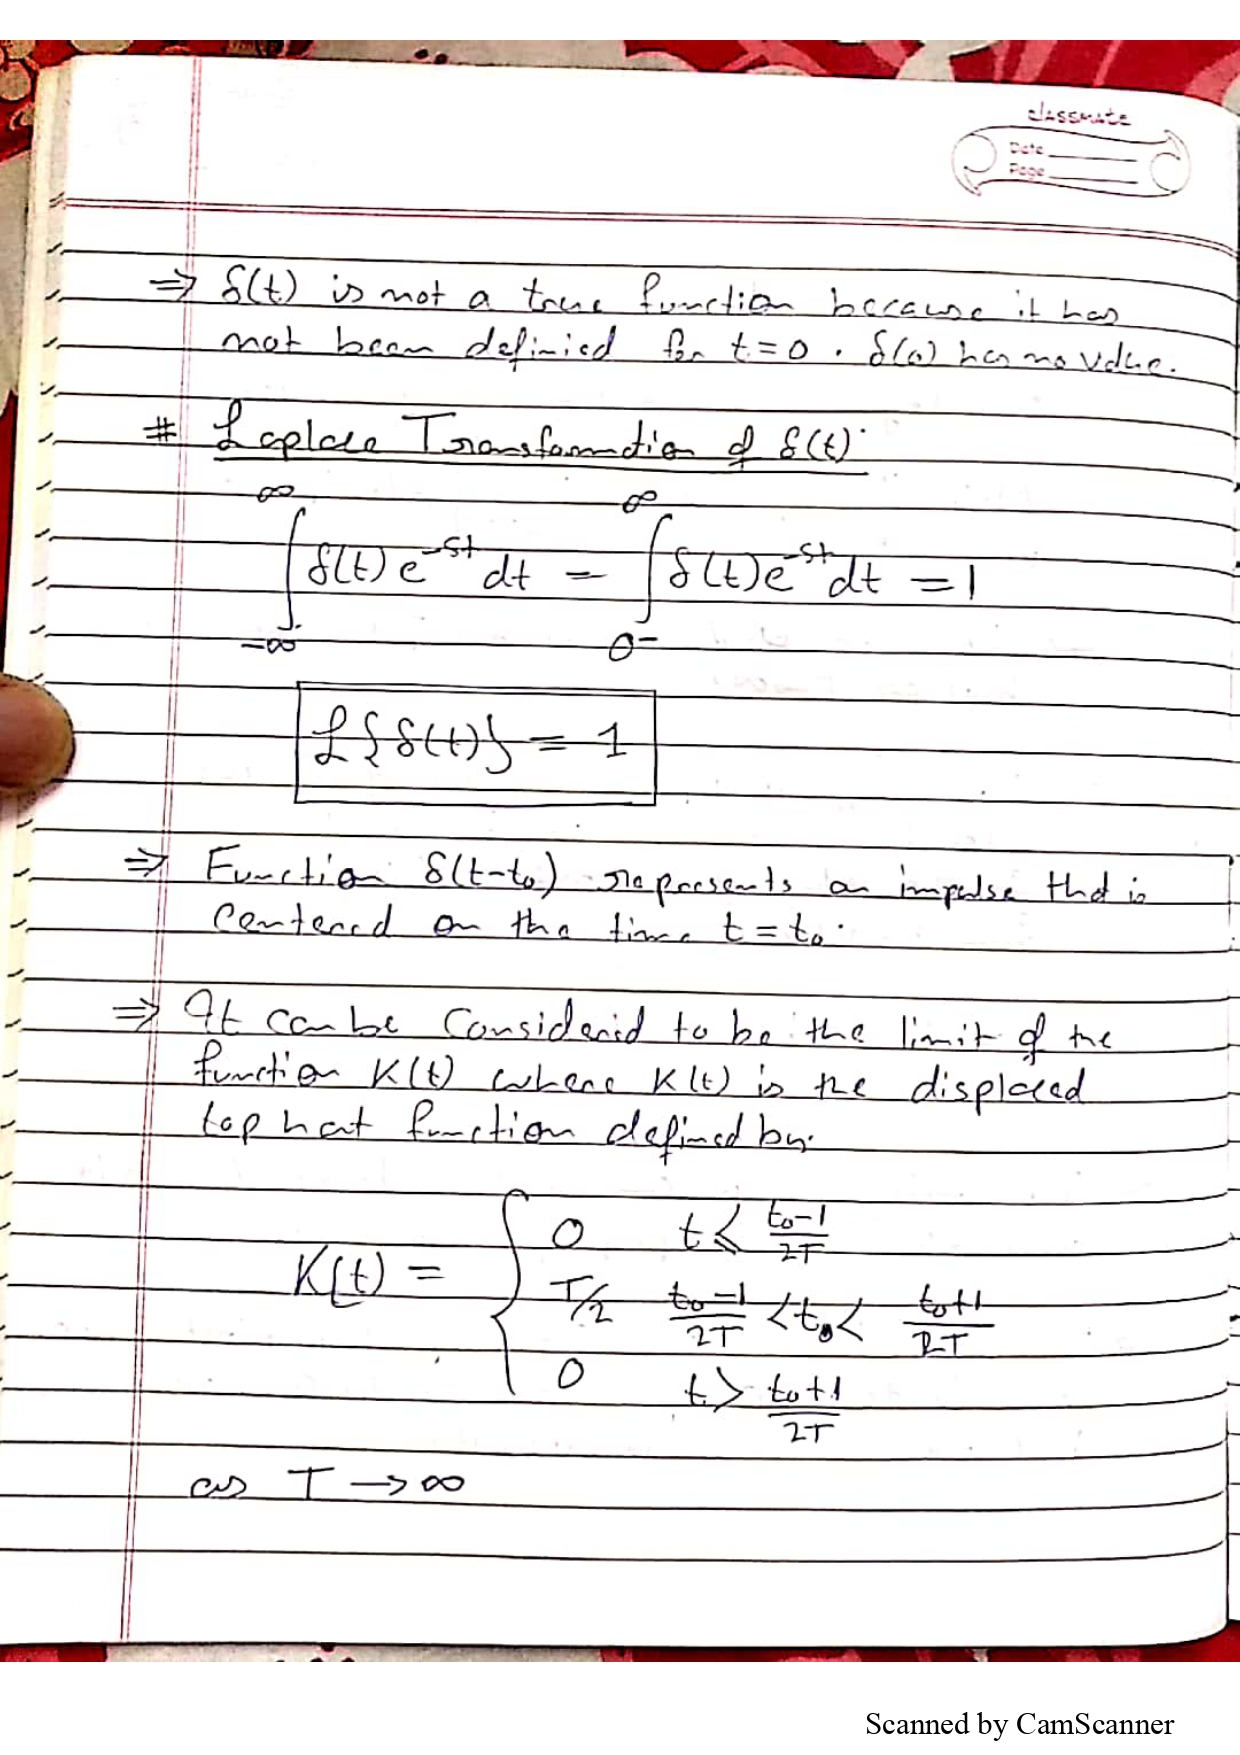 classmate
Date
Page
⇒ δ(t) is not a true function because it has
not been definied for t = 0 . δ(0) has no value.
# Laplace Transformation of δ(t).
∫_{-∞}^{∞} δ(t) e^{-st} dt = ∫_{0^-}^{∞} δ(t) e^{-st} dt = 1
£{δ(t)} = 1
⇒ Function δ(t-t₀) represents an impulse that is
centered on the time t = t₀.
⇒ It can be considerid to be the limit of the
function K(t) where K(t) is the displaced
top hat function defined by.
K(t) = { 0 t ≤ (t₀-1)/2T
T/2 (t₀-1)/2T < t₀ < (t₀+1)/2T
0 t > (t₀+1)/2T
as T → ∞
Scanned by CamScanner